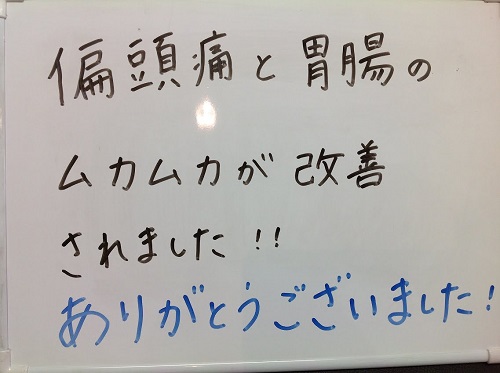 偏頭痛と胃腸の
ムカムカが改善
されました!!
ありがとうございました!